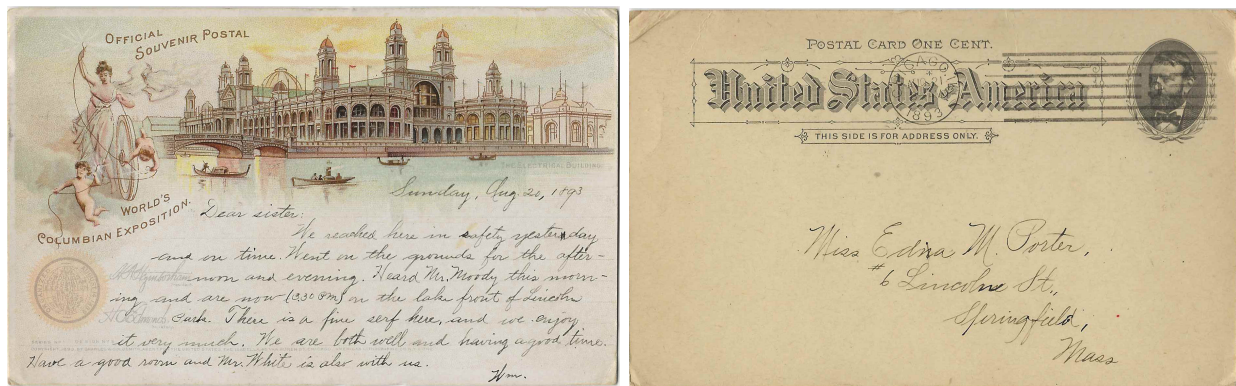 OFFICIAL
SOUVENIR POSTAL
THE ELECTRICAL BUILDING.
WORLD'S
COLUMBIAN EXPOSITION.
Sunday, Aug 20, 1893
Dear sister:
We reached here in safety yesterday
and on time. Went on the grounds for the after-
noon and evening. Heard Mr. Moody this morn-
ing, and are now (3.30 P.M.) on the lake front of Lincoln
Park. There is a fine serf here, and we enjoy
it very much. We are both well and having a good time.
Have a good room and Mr. White is also with us.
Wm.
POSTAL CARD ONE CENT.
United States of America
CHICAGO
1893
THIS SIDE IS FOR ADDRESS ONLY.
Miss Edna M. Porter,
#6 Lincoln St.,
Springfield,
Mass